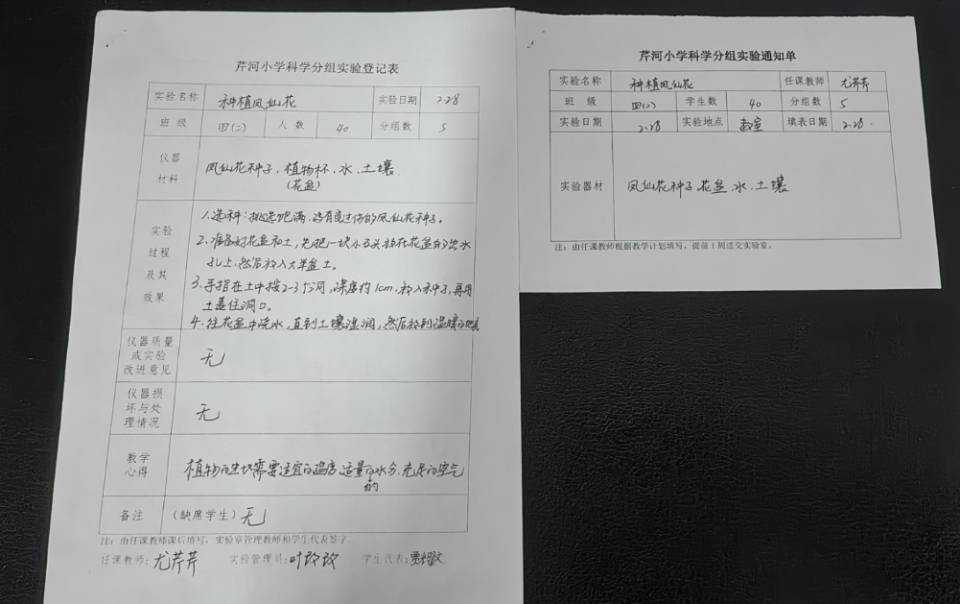 芹河小学科学分组实验登记表
实验名称 种植凤仙花 实验日期 2.28
班 级 四(二) 人 数 40 分组数 5
仪器
材料
凤仙花种子、植物杯、水、土壤
(花盆)
实验
过程
及其
效果
1.选种:挑选饱满、没有受过伤的凤仙花种子。
2.准备好花盆和土,先把一块小石头放在花盆的流水
孔上,然后放入大半盆土。
3.手指在土中按2-3个洞,深度约1cm,放入种子,再用
土盖住洞口。
4.往花盆中浇水,直到土壤湿润,然后放到温暖的地方
仪器质量
或实验
改进意见
无
仪器损
坏与处
理情况
无
教学
心得
植物的生长需要适宜的温度、适量的水分、充足的空气
的
备注 (缺席学生) 无
注:由任课教师课后填写,实验室管理教师和学生代表签字
任课教师:尤芹芹 实验管理员: 学生代表:
芹河小学科学分组实验通知单
实验名称 种植凤仙花 任课教师 尤芹芹
班 级 四(二) 学生数 40 分组数 5
实验日期 2.28 实验地点 教室 填表日期 2.28.
实验器材 凤仙花种子、花盆、水、土壤
注:由任课教师根据教学计划填写,提前1周送交实验室。